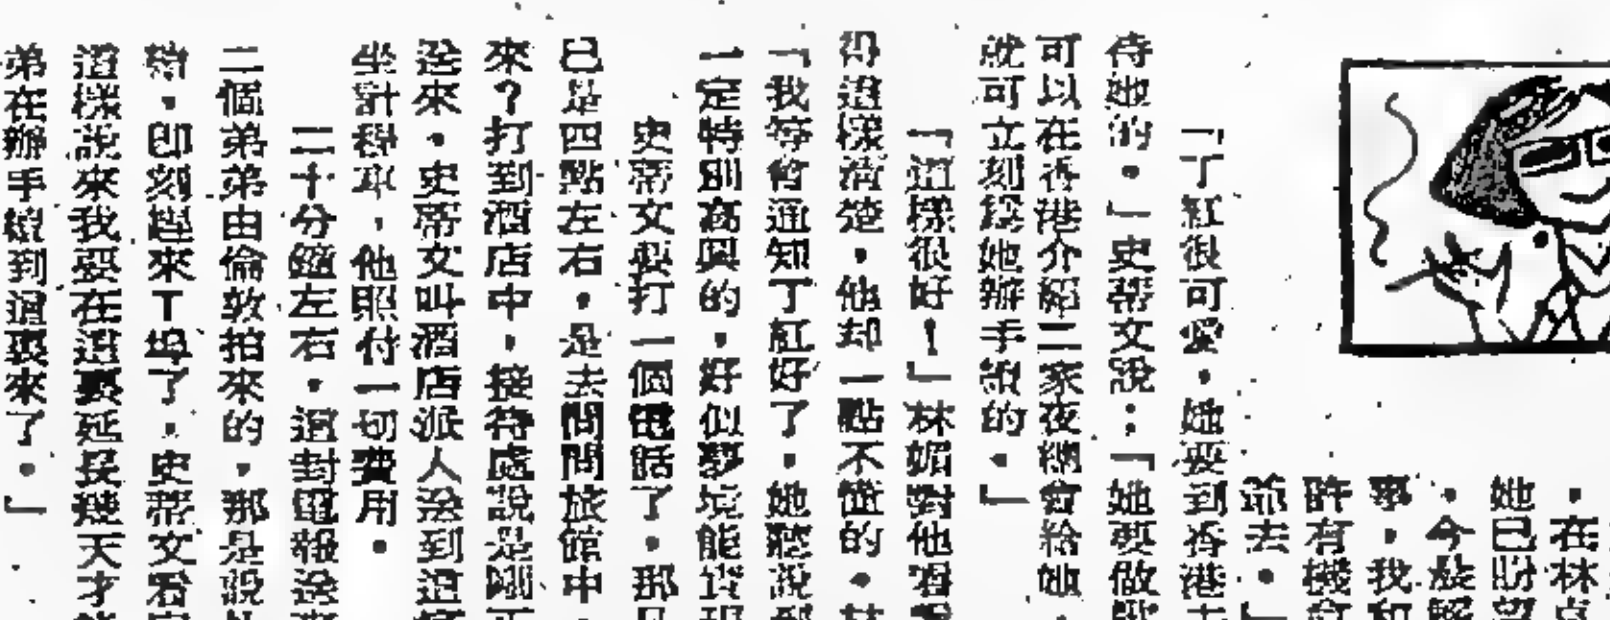 ・在林
她已
・今晨
事，我和
許有機會
爺去。」
「丁紅很可愛，她要到香港
侍她的。」史蒂文說：「她要做歌
可以在香港介紹二家夜總會給她，
就可立刻爲她辦手續的。」
「這樣很好！」林媚對他
得這樣清楚，他却一點不懂的。林
「我等會通知丁紅好了，她聽說
一定特別高興的，好似夢境能實現
史蒂文要打一個電話了。那
已是四點左右，是去問問旅館中，
來？打到酒店中，接待處說是剛
送來，史蒂文叫酒店派人送到這
坐計程車，他照付一切費用。
二十分鐘左右，這封電報送來
二個弟弟由倫敦拍來的，那是說
續，即刻趕來T埠了，史蒂文看
這樣說來我要在這裏延長幾天才能
弟在辦手續到這裏來了。」